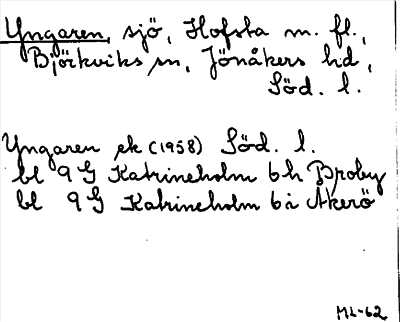 Yngaren, sjö, Hofsta m. fl.,
Björkviks sn, Jönåkers hd,
Söd. l.
Yngaren ek (1958) Söd. l.
bl 9 G Katrineholm 6 h Broby
bl 9 G Katrineholm 6 i Åkerö
ML-62